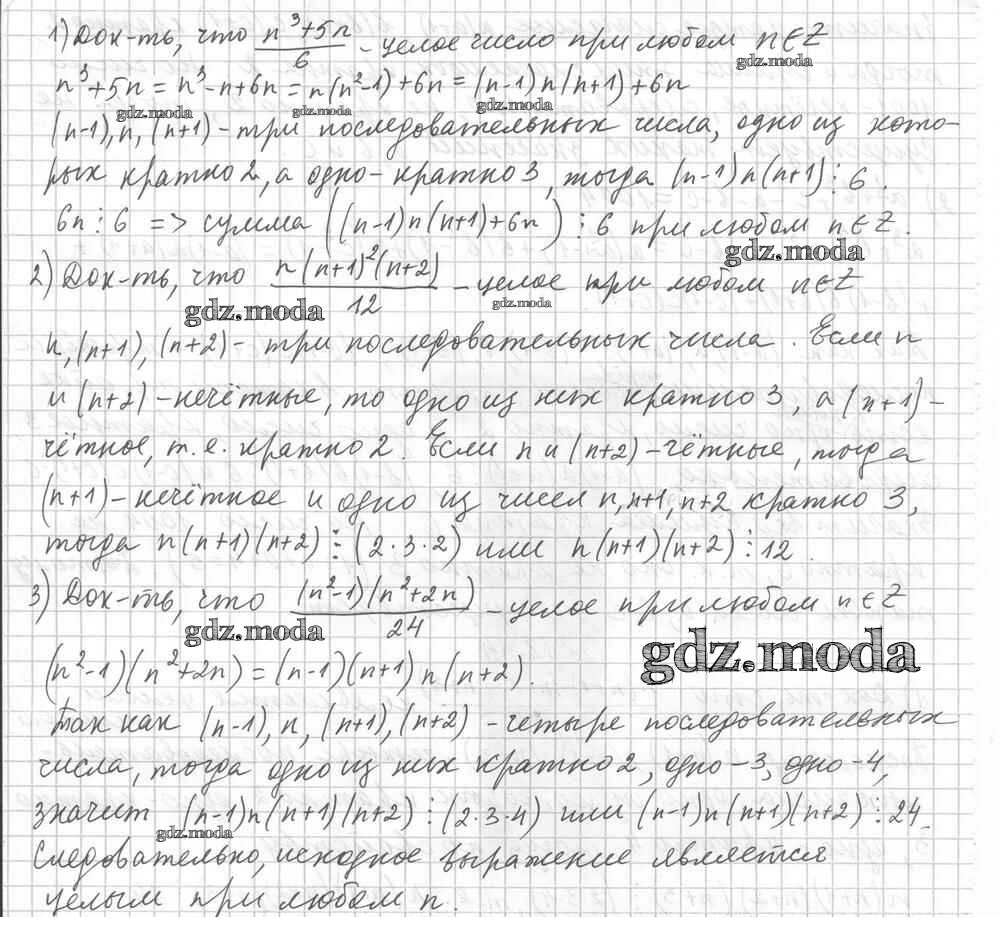 1) Док-ть, что (n³+5n)/6 - целое число при любом n∈Z
gdz.moda
n³+5n = n³-n+6n = n(n²-1)+6n = (n-1)n(n+1)+6n
gdz.moda gdz.moda gdz.moda
(n-1), n, (n+1) - три последовательных числа, одно из кото-
gdz.moda
рых кратно 2, а одно - кратно 3, тогда (n-1)n(n+1)⋮6.
6n⋮6 => сумма ((n-1)n(n+1)+6n)⋮6 при любом n∈Z.
gdz.moda
2) Док-ть, что n(n+1)²(n+2)/12 - целое при любом n∈Z
gdz.moda gdz.moda
n, (n+1), (n+2) - три последовательных числа. Если n
и (n+2) - нечётные, то одно из них кратно 3, а (n+1) -
чётное, т.е. кратно 2. Если n и (n+2) - чётные, тогда
(n+1) - нечётное и одно из чисел n, n+1, n+2 кратно 3,
тогда n(n+1)(n+2)⋮(2·3·2) или n(n+1)(n+2)⋮12.
3) Док-ть, что (n²-1)(n²+2n)/24 - целое при любом n∈Z
gdz.moda gdz.moda
(n²-1)(n²+2n) = (n-1)(n+1)n(n+2).
Так как (n-1), n, (n+1), (n+2) - четыре последовательных
числа, тогда одно из них кратно 2, одно - 3, одно - 4,
значит (n-1)n(n+1)(n+2)⋮(2·3·4) или (n-1)n(n+1)(n+2)⋮24.
gdz.moda
Следовательно, исходное выражение является
целым при любом n.